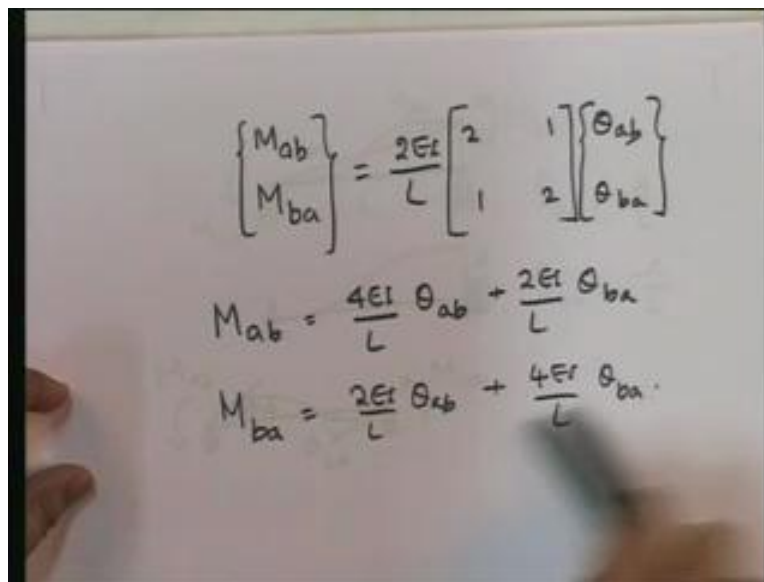 {M_ab M_ba} = 2EI/L [2 1 1 2] {θ_ab θ_ba}
M_ab = 4EI/L θ_ab + 2EI/L θ_ba
M_ba = 2EI/L θ_ab + 4EI/L θ_ba.